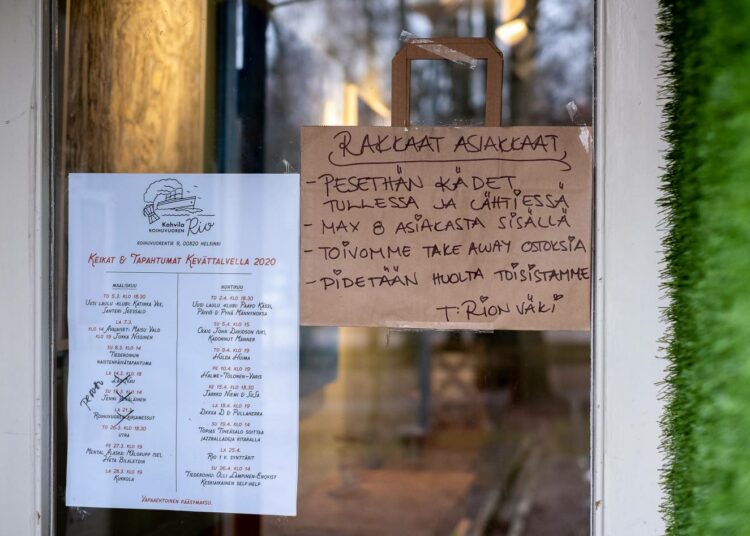 RAKKAAT ASIAKKAAT,
- PESETHÄN KÄDET
TULLESSA JA LÄHTIESSÄ
- MAX 8 ASIAKASTA SISÄLLÄ
- TOIVOMME TAKE AWAY OSTOKSIA
- PIDETÄÄN HUOLTA TOISISTAMME
T: RION VÄKI
Kahvila
KOIHUVUOREN
Rio
KOIHUVUORENTIE 9, 00820 HELSINKI
KEIKAT & TAPAHTUMAT KEVÄTTALVELLA 2020
MAALISKUU
TO 5.3. KLO 18.30
UUSI LAULU -KLUBI: KATINKA VEE,
SANTERI
LA 7.3.
KLO 14 AVAJAISET: MAISU VALO
KLO 19 JUKKA NISSINEN
SU 8.3. KLO 14
TIEDEROIHUN
NAISTENPÄIVÄTAPAHTUMA
LA 14.3. KLO 18
SU 15.3. KLO 14
JENNI
LA 21.3.
PERUTTU
TO 26.3. KLO 18.30
UTRA
PE 27.3. KLO 19
MENTAL ALASKA: MÄLGRUPP (SE),
HETA BILALETDIN
LA 28.3. KLO 19
KUKKOLA
HUHTIKUU
TO 2.4. KLO 18.30
UUSI LAULU -KLUBI: PAAVO KÄSSI,
PÄIVIÖ & PYHÄ MÄNNYNOKSA
SU 5.4. KLO 15
CRAIG JOHN DAVIDSON (UK),
KADONNUT MANNER
TO 9.4. KLO 19
HULDA HUIMA
PE 10.4. KLO 19
HALME-TOLONEN-VARIS
KE 15.4. KLO 18.30
JARKKO NIEMI & SUJA
LA 18.4. KLO 19
DIXXA D & PULLAHERRA
SU 19.4. KLO 14
TOPIAS TIHEÄSALO SOITTAA
JAZZBALLADEJA KITARALLA
LA 25.4.
RIO 1 V. SYNTTÄRIT
SU 26.4. KLO 14
TIEDEROIHU: OLLI LAMPINEN-ENQVIST
KESKIAIKAINEN SELF-HELP
VAPAAEHTOINEN PÄÄSYMAKSU.